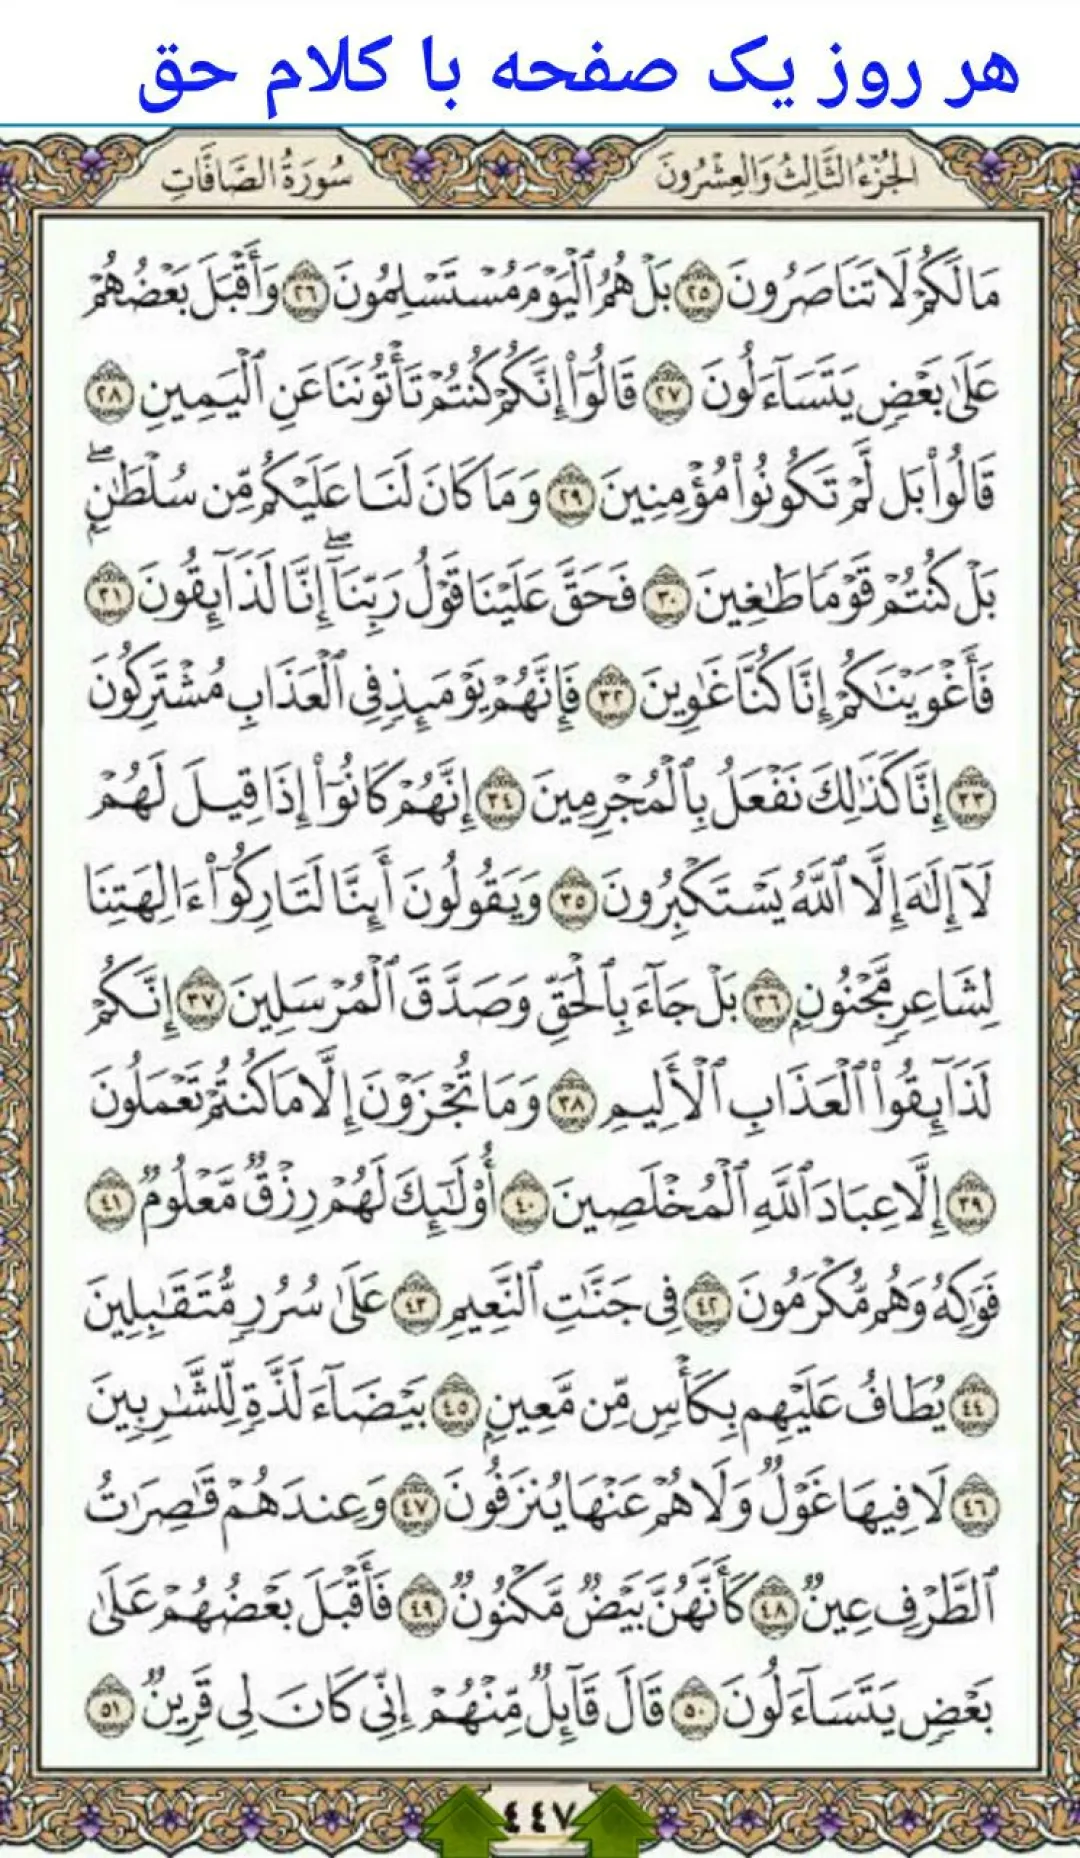 هر روز یک صفحه با کلام حق
الجُزْءُ الثَّالِثُ وَالعِشْرُونَ
سُورَةُ الصَّافَّاتِ
مَا لَكُمْ لَا تَنَاصَرُونَ ٢٥ بَلْ هُمُ ٱلْيَوْمَ مُسْتَسْلِمُونَ ٢٦ وَأَقْبَلَ بَعْضُهُمْ
عَلَىٰ بَعْضٍ يَتَسَآءَلُونَ ٢٧ قَالُوٓا۟ إِنَّكُمْ كُنتُمْ تَأْتُونَنَا عَنِ ٱلْيَمِينِ ٢٨
قَالُوا۟ بَل لَّمْ تَكُونُوا۟ مُؤْمِنِينَ ٢٩ وَمَا كَانَ لَنَا عَلَيْكُم مِّن سُلْطَٰنٍۭ ۖ
بَلْ كُنتُمْ قَوْمًا طَٰغِينَ ٣٠ فَحَقَّ عَلَيْنَا قَوْلُ رَبِّنَآ ۖ إِنَّا لَذَآئِقُونَ ٣١
فَأَغْوَيْنَٰكُمْ إِنَّا كُنَّا غَٰوِينَ ٣٢ فَإِنَّهُمْ يَوْمَئِذٍ فِى ٱلْعَذَابِ مُشْتَرِكُونَ
٣٣ إِنَّا كَذَٰلِكَ نَفْعَلُ بِٱلْمُجْرِمِينَ ٣٤ إِنَّهُمْ كَانُوٓا۟ إِذَا قِيلَ لَهُمْ
لَآ إِلَٰهَ إِلَّا ٱللَّهُ يَسْتَكْبِرُونَ ٣٥ وَيَقُولُونَ أَئِنَّا لَتَارِكُوٓا۟ ءَالِهَتِنَا
لِشَاعِرٍ مَّجْنُونٍۭ ٣٦ بَلْ جَآءَ بِٱلْحَقِّ وَصَدَّقَ ٱلْمُرْسَلِينَ ٣٧ إِنَّكُمْ
لَذَآئِقُوا۟ ٱلْعَذَابِ ٱلْأَلِيمِ ٣٨ وَمَا تُجْزَوْنَ إِلَّا مَا كُنتُمْ تَعْمَلُونَ
٣٩ إِلَّا عِبَادَ ٱللَّهِ ٱلْمُخْلَصِينَ ٤٠ أُو۟لَٰٓئِكَ لَهُمْ رِزْقٌ مَّعْلُومٌ ٤١
فَوَٰكِهُ وَهُم مُّكْرَمُونَ ٤٢ فِى جَنَّٰتِ ٱلنَّعِيمِ ٤٣ عَلَىٰ سُرُرٍ مُّتَقَٰبِلِينَ
٤٤ يُطَافُ عَلَيْهِم بِكَأْسٍ مِّن مَّعِينٍۭ ٤٥ بَيْضَآءَ لَذَّةٍ لِّلشَّٰرِبِينَ
٤٦ لَا فِيهَا غَوْلٌ وَلَا هُمْ عَنْهَا يُنزَفُونَ ٤٧ وَعِندَهُمْ قَٰصِرَٰتُ
ٱلطَّرْفِ عِينٌ ٤٨ كَأَنَّهُنَّ بَيْضٌ مَّكْنُونٌ ٤٩ فَأَقْبَلَ بَعْضُهُمْ عَلَىٰ
بَعْضٍ يَتَسَآءَلُونَ ٥٠ قَالَ قَآئِلٌ مِّنْهُمْ إِنِّى كَانَ لِى قَرِينٌ ٥١
٤٤٧